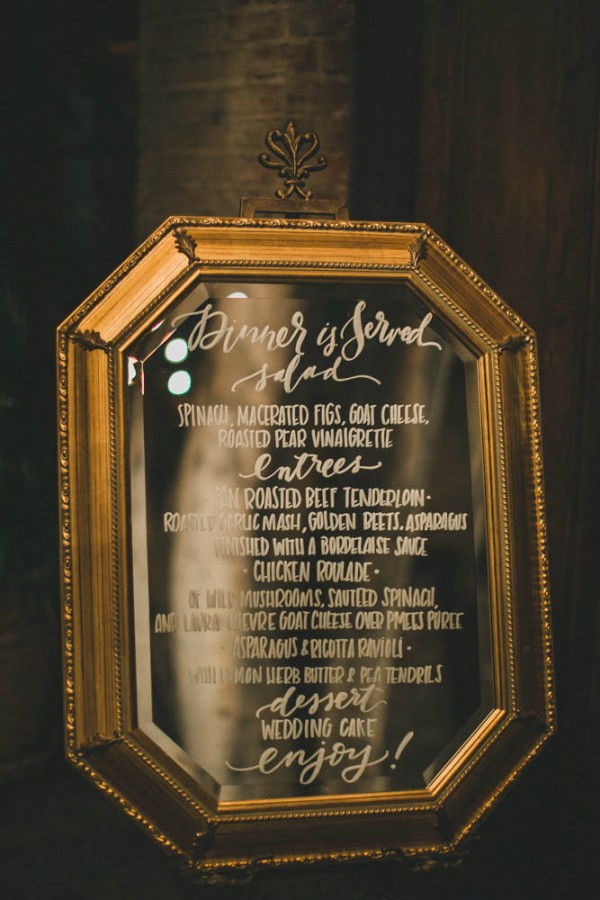 Dinner is Served
salad
SPINACH, MACERATED FIGS, GOAT CHEESE,
ROASTED PEAR VINAIGRETTE
entrees
PAN ROASTED BEEF TENDERLOIN •
ROASTED GARLIC MASH, GOLDEN BEETS, ASPARAGUS
FINISHED WITH A BORDELAISE SAUCE
• CHICKEN ROULADE •
OF WILD MUSHROOMS, SAUTEED SPINACH,
AND LAURA CHEVRE GOAT CHEESE OVER PMEES PUREE
• ASPARAGUS & RICOTTA RAVIOLI •
WITH LEMON HERB BUTTER & PEA TENDRILS
dessert
WEDDING CAKE
enjoy!